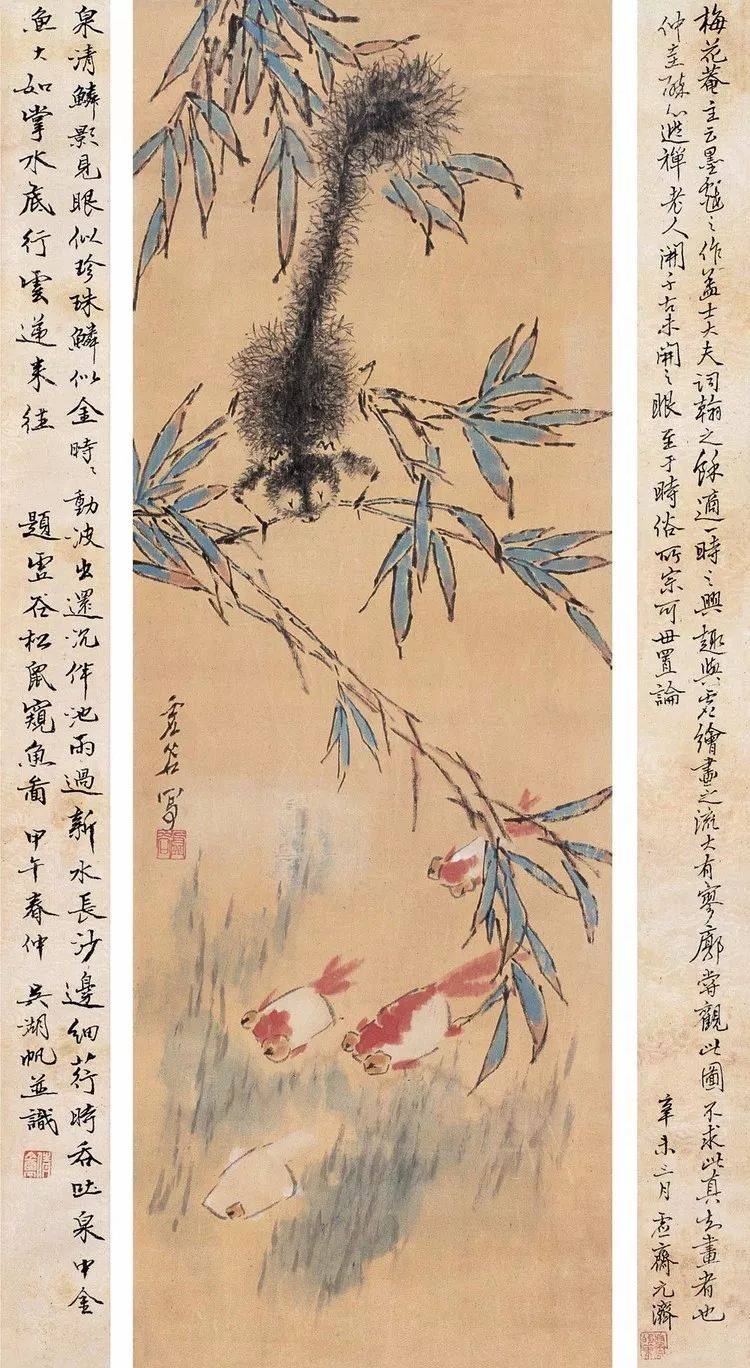 梅花菴主云墨戲之作蓋士大夫詞翰之餘適一時之興趣與夫繪畫之流大有寥廓嘗觀此圖不求此真畫者也
仲圭醉心逃禪老人開千古未開之眼至于時俗所宗可毋置論
辛未三月 虛齋元濟
虛谷寫
虛谷
泉清鱗影見眼似珍珠鱗似金時々動波出還沉伴池雨過新水長沙邊細荇時吞吐泉中金
魚大如掌水底行雲遞來往 題虛谷松鼠窺魚圖 甲午春仲 吳湖帆並識